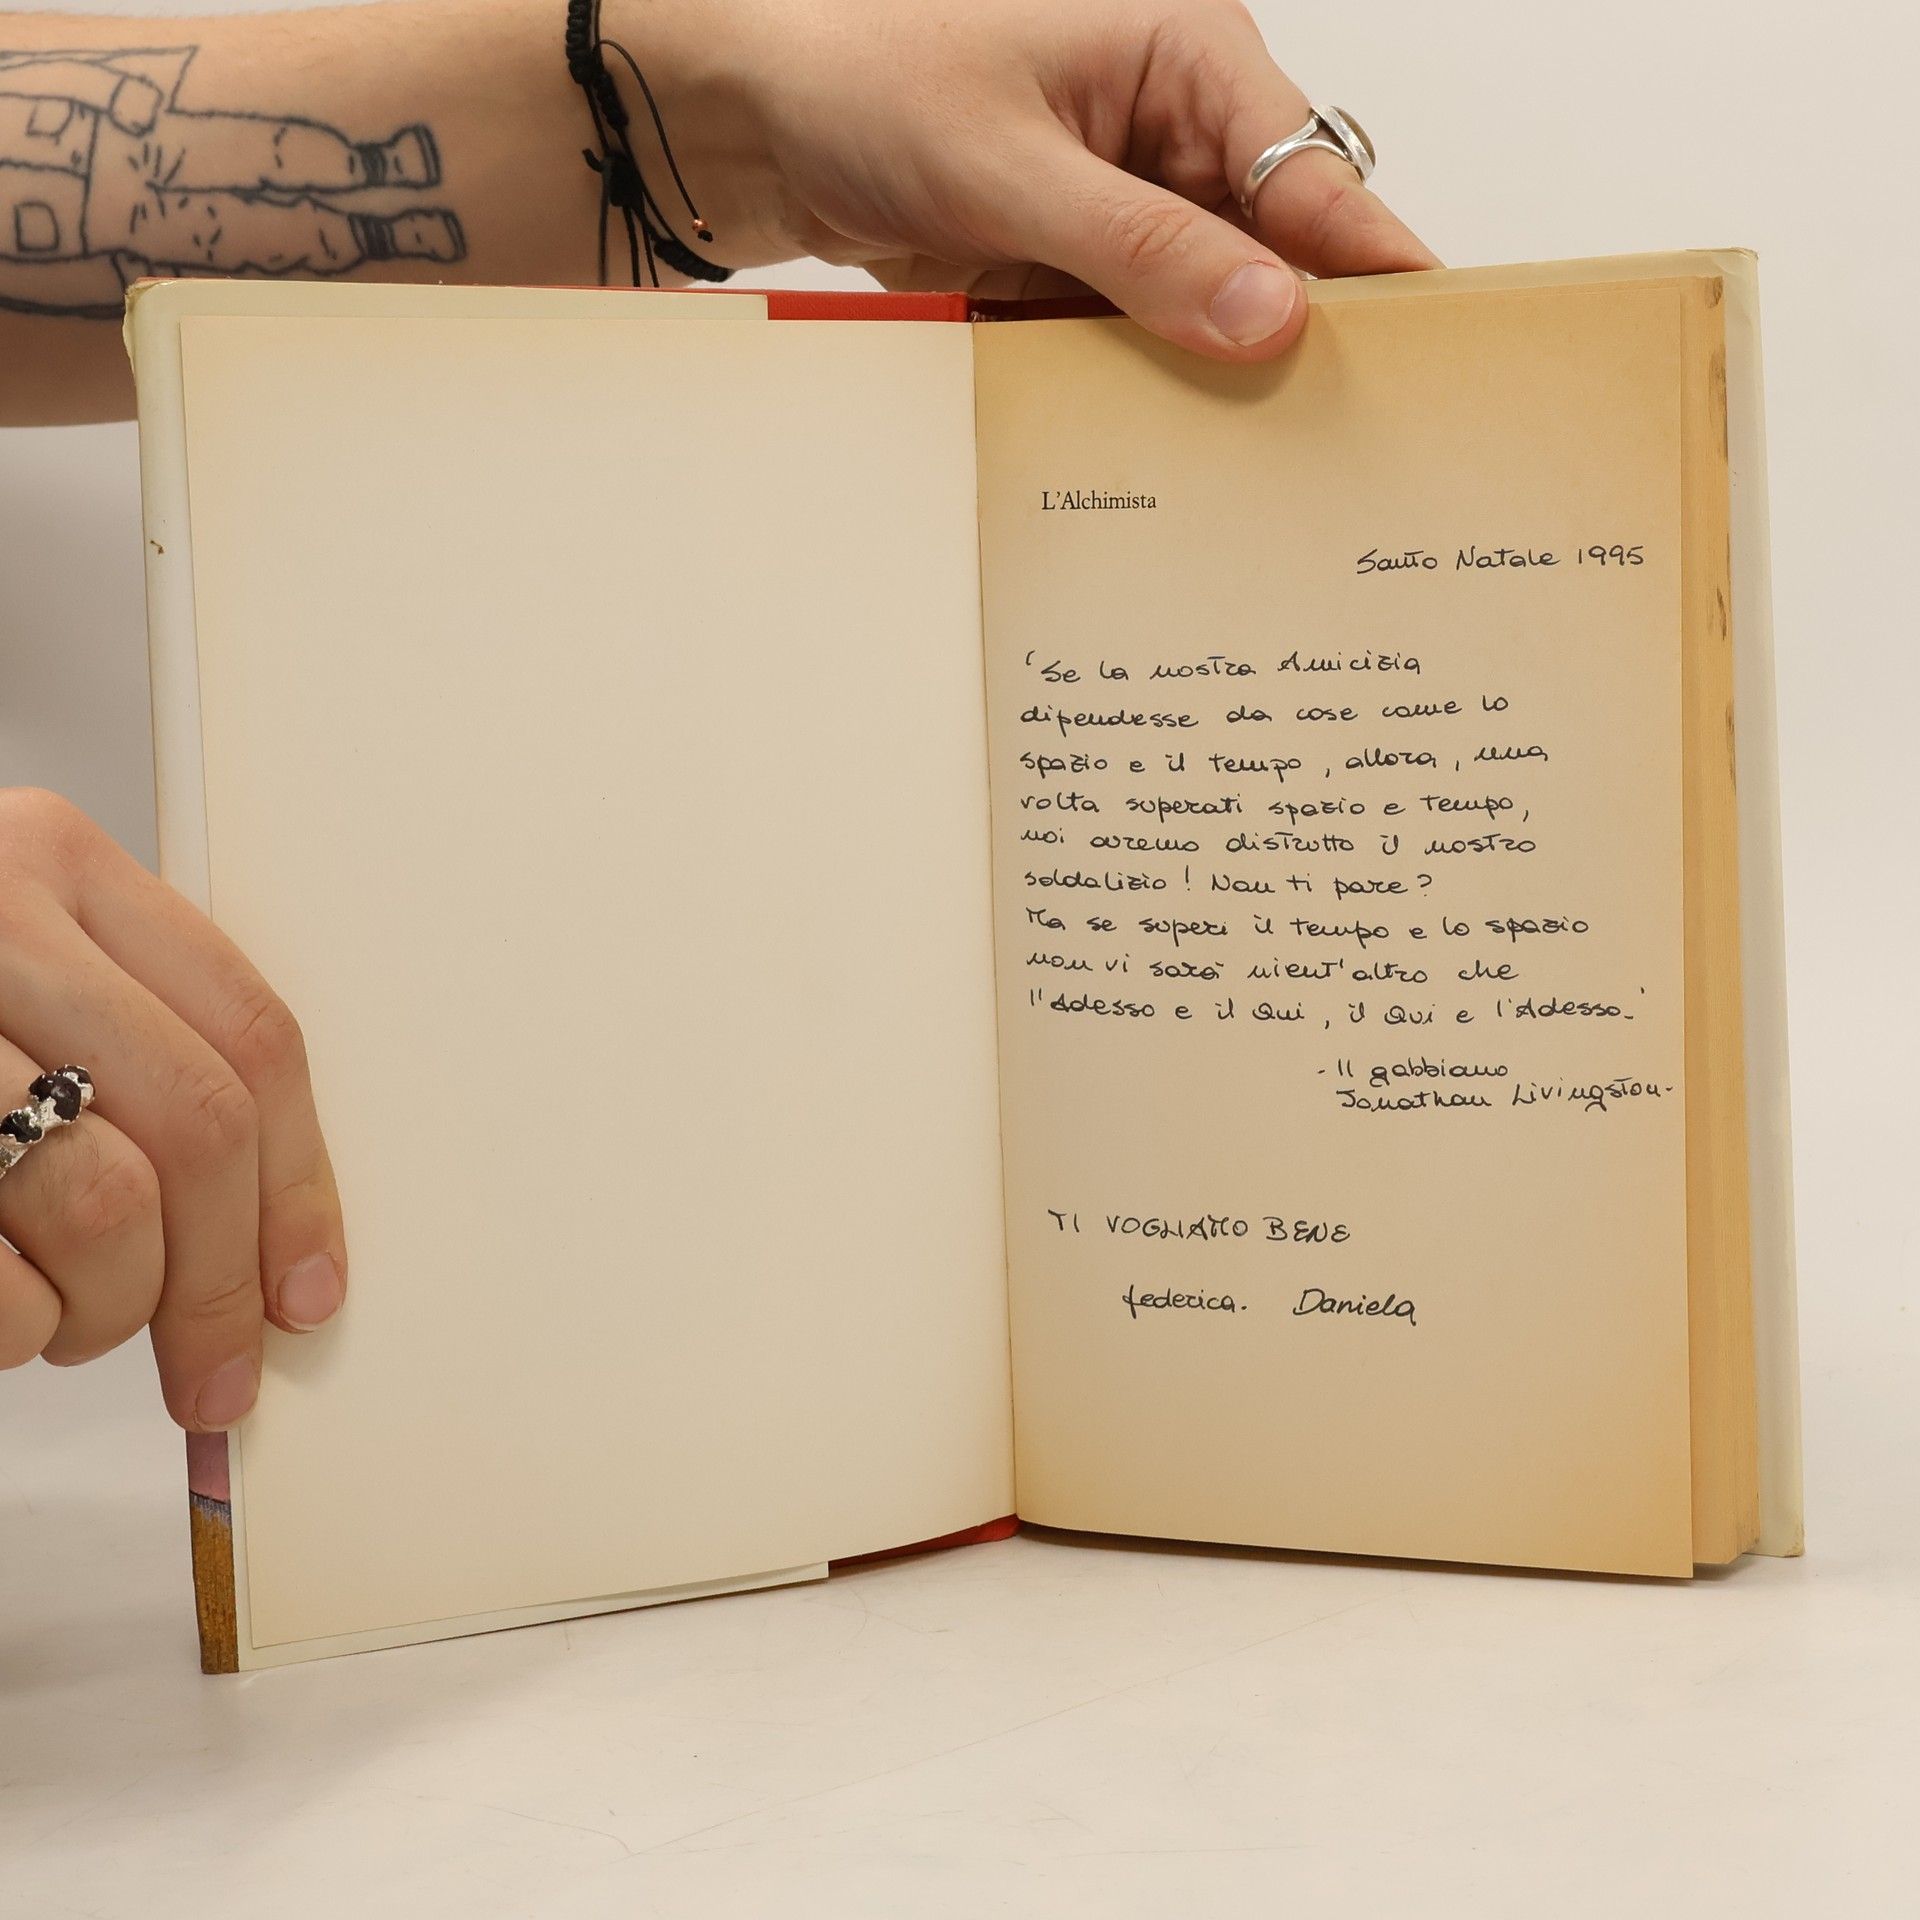 L'Alchimista
Santo Natale 1995
'Se la nostra Amicizia
dipendesse da cose come lo
spazio e il tempo, allora, una
volta superati spazio e tempo,
noi avremo distrutto il nostro
soldalizio! Non ti pare?
Ma se superi il tempo e lo spazio
non vi sarà nient'altro che
l'Adesso e il Qui, il Qui e l'Adesso.'
- Il gabbiano
Jonathan Livingston-
TI VOGLIAMO BENE
federica. Daniela